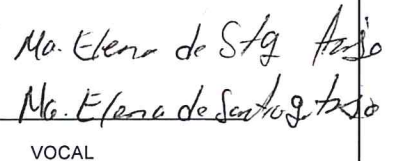 Ma. Elena de Stg
Ma. Elena de Santiago
VOCAL